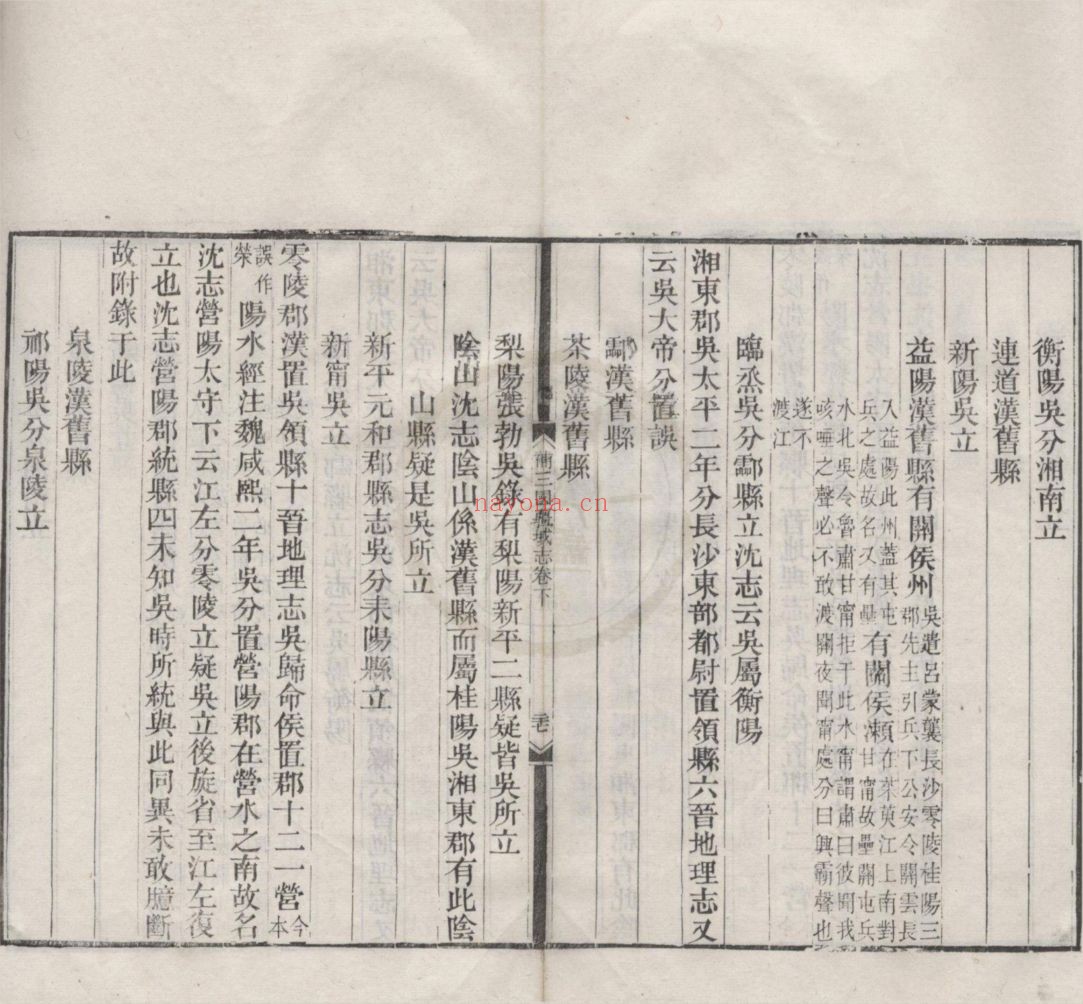 衡陽吳分湘南立
連道漢舊縣
新陽吳立
益陽漢舊縣有關侯州吳遣呂蒙襲長沙零陵桂陽三
郡先主引兵下公安令關雲長
入益陽此州蓋其屯
兵之處故名又有壘有關侯瀨在茱萸江上南對
甘甯故壘關屯兵
水北吳令魯肅甘甯拒于此水甯謂肅曰彼聞我
咳唾之聲必不敢渡關夜聞甯處分曰興霸聲也
遂不
渡江
臨烝吳分酃縣立沈志云吳屬衡陽
湘東郡吳太平二年分長沙東部都尉置領縣六晉地理志又
云吳大帝分置誤
酃漢舊縣
茶陵漢舊縣
補三國疆域志卷下
梨陽張勃吳錄有梨陽新平二縣疑皆吳所立
陰山沈志陰山係漢舊縣而屬桂陽吳湘東郡有此陰
山縣疑是吳所立
新平元和郡縣志吳分耒陽縣立
新甯吳立
零陵郡漢置吳領縣十晉地理志吳歸命侯置郡十二一營今
本
誤作
滎陽水經注魏咸熙二年吳分置營陽郡在營水之南故名
沈志營陽太守下云江左分零陵立疑吳立後旋省至江左復
立也沈志營陽郡統縣四未知吳時所統與此同異未敢臆斷
故附錄于此
泉陵漢舊縣
祁陽吳分泉陵立
nayona.cn